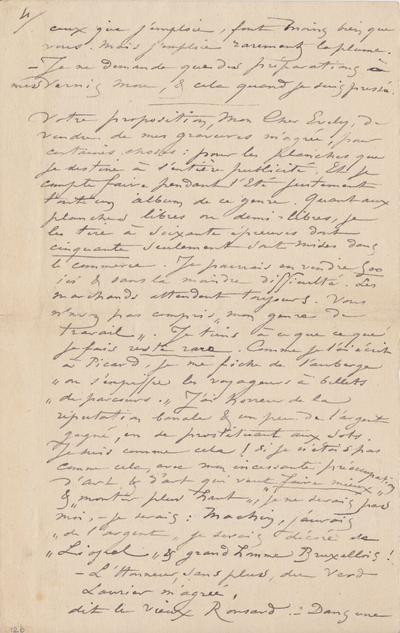 4/
ceux que j'emploie, font moins bien que
vous. Mais j'emploie rarement la plume.
– Je ne demande que des préparations à
mes Vernis Mous, & cela quand je suis pressé.
Votre proposition, Mon Cher Evely, de
vendre de mes gravures m'agrée, pour
certaines choses : pour les planches que
je destine à s'entière publicité. Et je
compte faire pendant l'Eté justement
tout un album de ce genre. Quant aux
planches libres ou demi-libres, je
les tire à soixante épreuves dont
cinquante seulement sont mises dans
le commerce. Je pourrais en vendre 500
ici & sans la moindre difficulté. Les
marchands attendent toujours. Vous
n'avez pas compris „mon genre de
travail„. Je tiens à ce que ce que
je fais reste rare. Comme je l'ai écrit
à Picard, je me fiche de l'auberge
„où s'empiffre les voyageurs à billets
„de parcours.„ J'ai horreur de la
réputation banale & un peu de l'argent
gagné, en se prostituant aux sots.
Je suis comme cela ! si je n'étais pas
comme cela, avec mon incessante préoccupation
d'art & d'art qui veut „faire mieux„
& „monter plus haut„, je ne serais pas
moi, – je serais : Machin, j'aurais
„de l'argent„ je serais décoré de
„Léopold„ & grand homme Bruxellois !
– L'Honneur, sans plus, du verd
Laurier m'agrée,
dit le vieux Ronsard. – Dans une
126